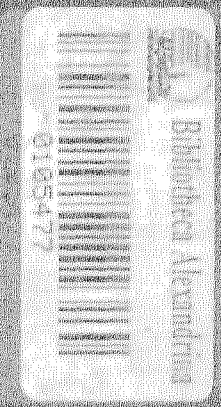 Bibliotheca Alexandrina
0105477